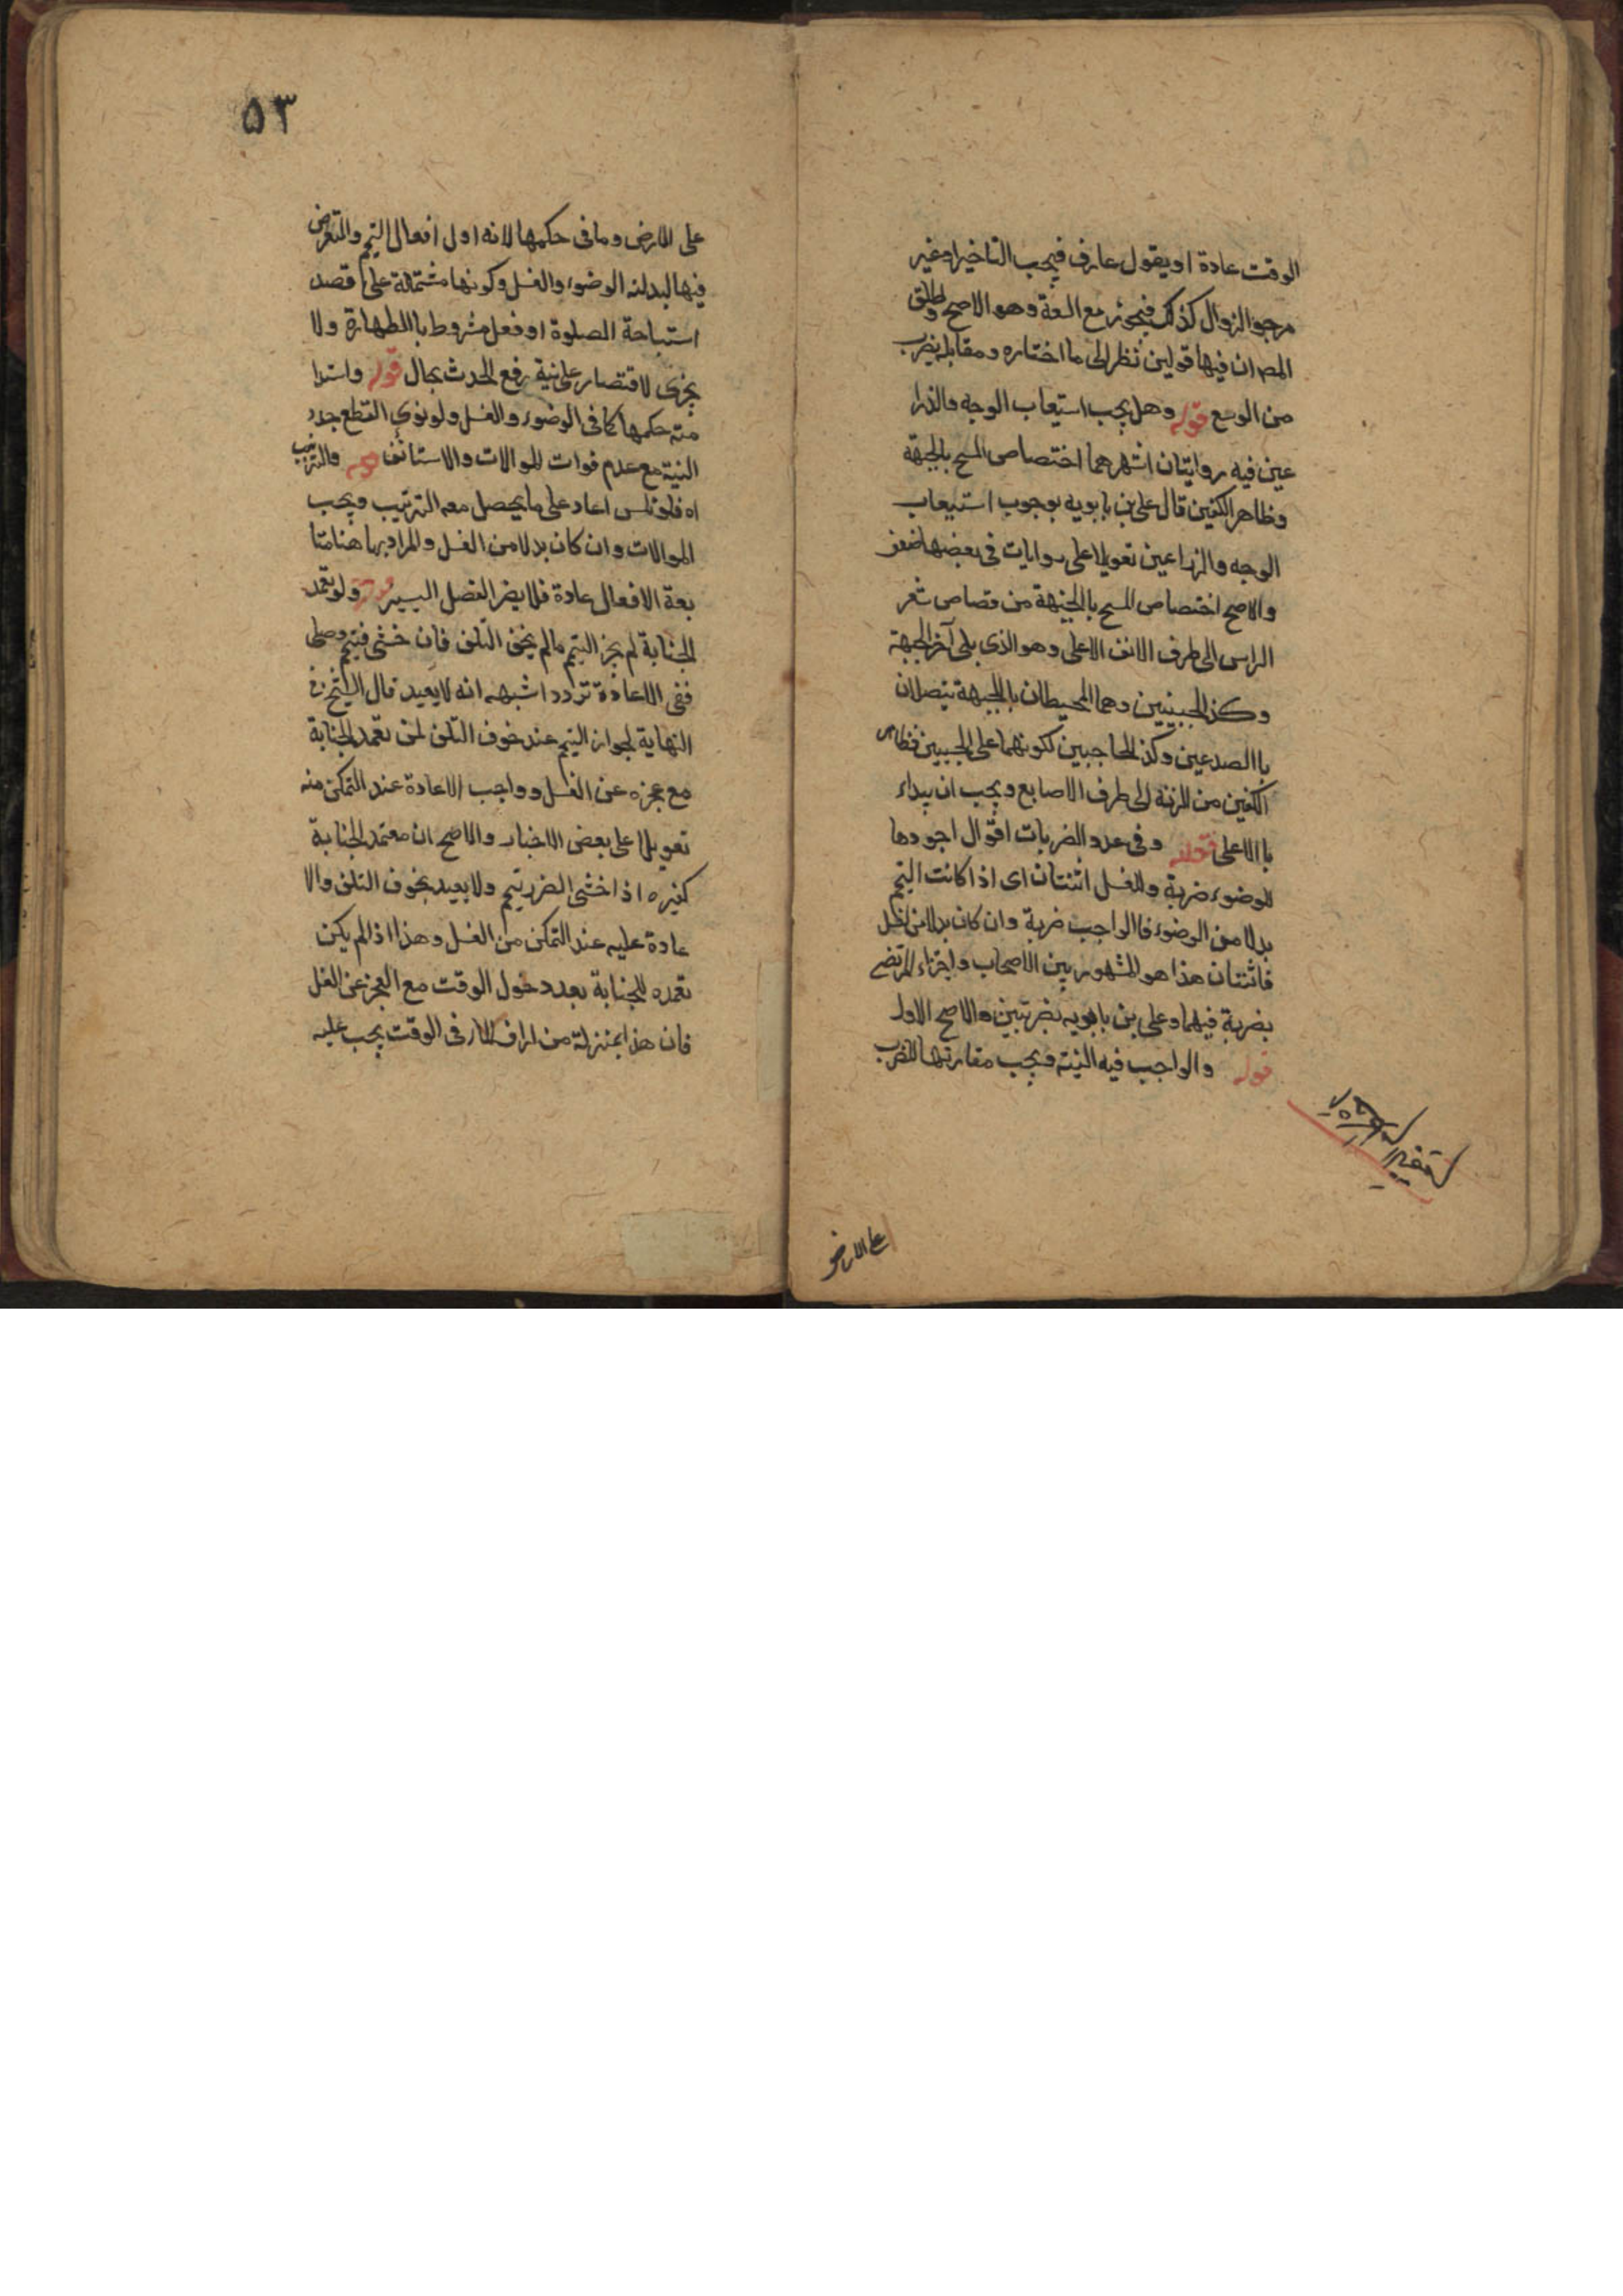 الوقت عادة او يقول عارف فيجب التاخير او غير
مرجو الزوال كذلك فيجوز مع السعة وهو الاصح واطلق
المص ان فيها قولين نظر الى ما اختاره ومقابله بضرب
من الوسع قوله وهل يجب استيعاب الوجه والذرا
عين فيه روايتان اشهرهما اختصاص المسح بالجبهة
وظاهر الكفين قال على بن بابويه بوجوب استيعاب
الوجه والذراعين تعويلا على روايات فى بعضها ضعف
والاصح اختصاص المسح بالجبهة من قصاص شعر
الراس الى طرف الانف الاعلى وهو الذى يلى آخر الجبهة
وكذ الجبينين وهما المحيطان بالجبهة يتصلان
باالصدعين وكذ الحاجبين لكونهما على الجبينين وظاهر
الكفين من الزند الى طرف الاصابع ويجب ان يبداء
باالاعلى قوله وفى عدد الضربات اقوال اجودها
للوضوء ضربة وللغسل اثنتان اى اذا كانت التيمم
بدلا من الوضوء فاالواجب ضربة وان كان بدلا من الغسل
فاثنتان هذا هو المشهور بين الاصحاب واجتزاء المرتضى
بضربة فيهما وعلى بن بابويه بضربتين والاصح الاول
قوله والواجب فيه النية ويجب مقارنتها للضرب
على الارض
٥٣
على الارض وما فى حكمها لانه اول افعال التيمم والتعرض
فيها لبدلية الوضوء والغسل وكونها مشتملة على قصد
استباحة الصلوة او فعل مشروط باالطهارة ولا
يجزى لاقتصار على نية رفع الحدث بحال قوله واستدا
مة حكمها كما فى الوضوء والغسل ولو نوى القطع جدد
النية مع عدم فوات الموالات والاستانف قوله والترتيب
اه فلو نكس اعاد على ما يحصل معه الترتيب ويجب
الموالات وان كان بدلا من الغسل والمراد بها هنا متا
بعة الافعال عادة فلا يضر الفصل اليسير قوله ولو تعمد
الجنابة لم يجز التيمم مالم يخف التلف فان خشى فتيمم وصلى
ففى الاعادة تردد اشبهه انه لا يعيد قال الشيخ فى
النهاية لجواز التيمم عند خوف التلف لمن تعمد الجنابة
مع عجزه عن الغسل وواجب الاعادة عند التمكن منه
تعويلا على بعض الاخبار والاصح ان معتمد الجنابة
كغيره اذا خشى الضرر تيمم ولا يعيد بخوف التلف والا
عادة عليه عند التمكن من الغسل وهذا اذالم يكن
تعمده للجنابة بعد دخول الوقت مع العجز عن الغسل
فان هذا بمنزلة من اراق الماء فى الوقت يجب عليه